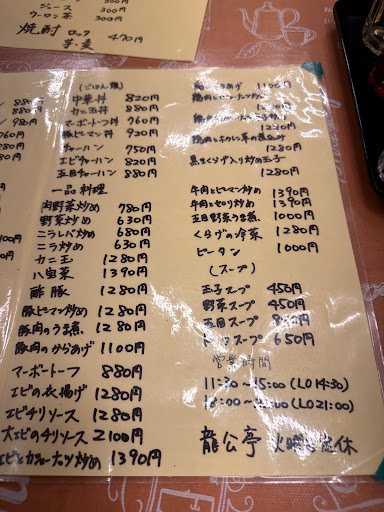 ジュース 300円
ウーロン茶 300円
焼酎 ロック 470円
芋・麦
(ごはん類)
中華丼 820円
カニ玉丼 880円
マーボートーフ丼 960円
豚ピーマン丼 920円
チャーハン 750円
エビチャーハン 820円
五目チャーハン 880円
一品料理
肉野菜炒め 780円
野菜炒め 630円
ニラレバ炒め 680円
ニラ炒め 630円
カニ玉 1280円
八宝菜 1390円
酢豚 1280円
豚ピーマン炒め 1280円
豚肉のうま煮 1280円
豚肉のからあげ 1100円
マーボートーフ 880円
エビの衣揚げ 1280円
エビチリソース 1280円
大エビのチリソース 2100円
エビとカシューナッツ炒め 1390円
1100円
1280円
黒きくらげ入り炒め玉子
1280円
牛肉とピーマン炒め 1390円
牛肉とセロリ炒め 1390円
五目野菜うま煮 1000円
くらげの冷菜 1280円
ピータン 1000円
(スープ)
玉子スープ 450円
野菜スープ 450円
五目スープ
スープ 650円
営業時間
11:30~15:00 (LO14:30)
(LO21:00)
龍公亭 火曜定休